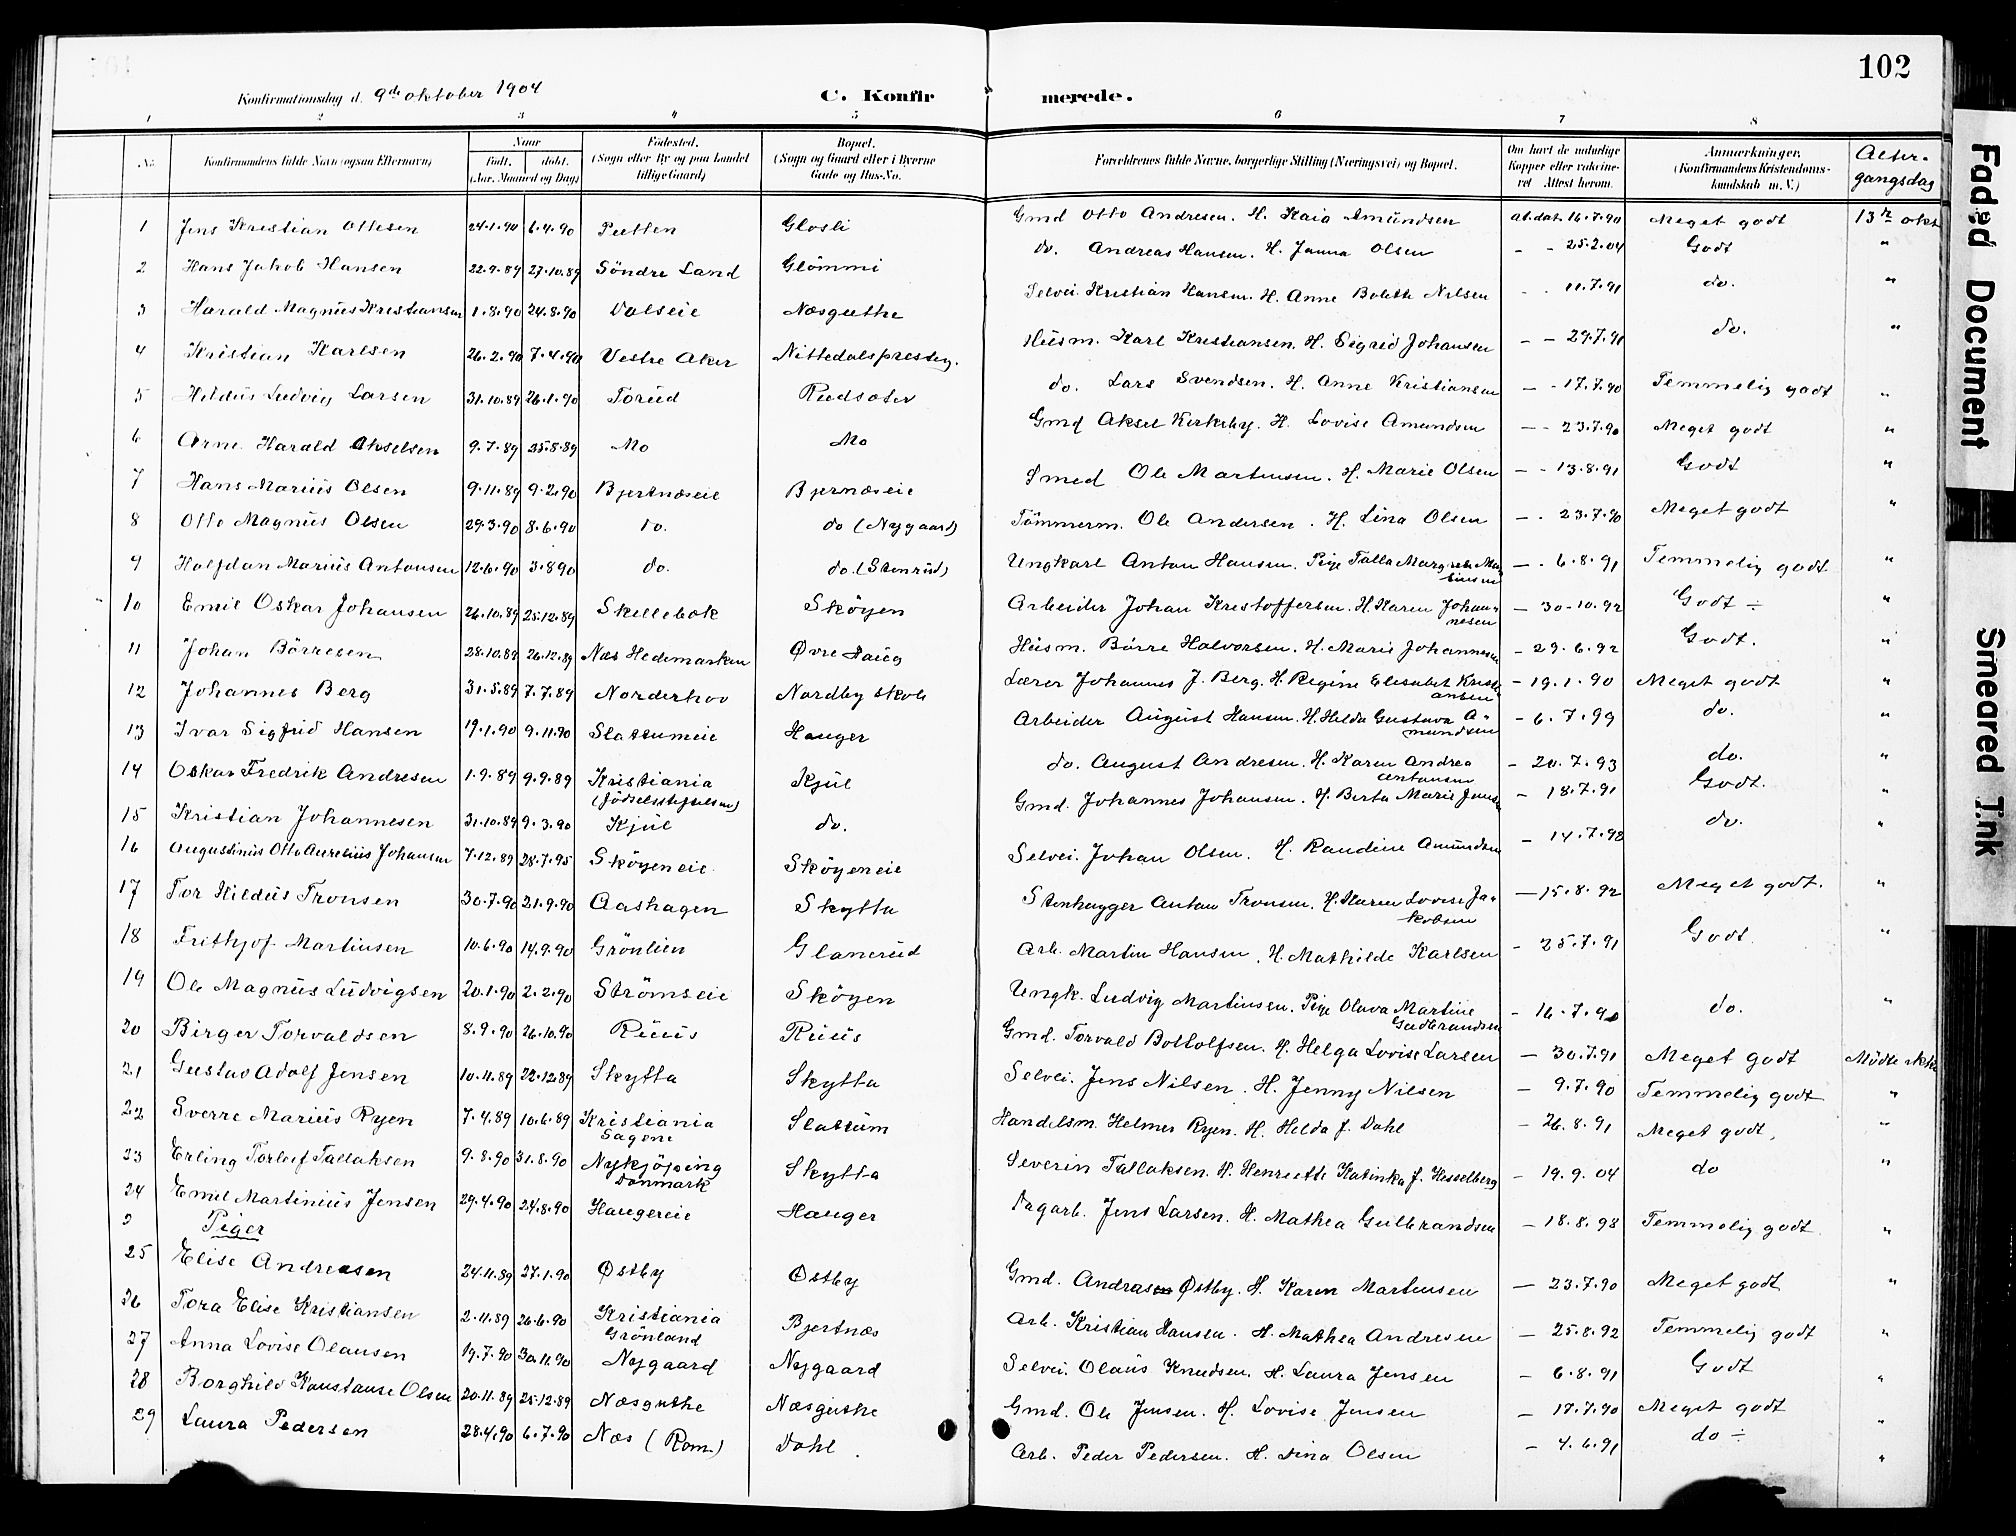 102
Konfirmationsdag d. 9de oktober 1904
C. Konfirmerede.
1 2 3 4 5 6 7 8
No. Konfirmandens fulde Navn (ogsaa Efternavn) Naar født. døbt. (Aar, Maaned og Dag) Fødested. (Sogn eller By og paa Landet tillige Gaard) Bopæl. (Sogn og Gaard eller i Byerne Gade og Hus-No. Forældrenes fulde Navne, borgerlige Stilling (Næringsvei) og Bopæl. Om havt de naturlige Kopper eller vaccineret Attest herom. Anmærkninger. (Konfirmandens Kristendomskundskab m. V.) Altergangsdag
1 Jens Kristian Ottesen 24.1.90 6.4.90 Putten Glosli Gmd Otto Andresen. H. Kaia Amundsen at. dat. 16.7.90 Meget godt 13de okt
2 Hans Jakob Hansen 22.9.89 27.10.89 Søndre Land Glømmi do. Andreas Hansen. H. Janna Olsen - - 25.2.04 Godt "
3 Harald Magnus Kristiansen 1.8.90 24.8.90 Dalseie Næsguthe Selvei. Kristian Hansen. H. Anne Bolette Nilsen - - 11.7.91 do. "
4 Kristian Karlsen 26.2.90 7.4.90 Vestre Aker Nittedalspresteg. Husm. Karl Kristiansen. H. Sigrid Johansen - - 29.7.91 do. "
5 Hildus Ludvig Larsen 31.10.89 26.1.90 Torud Rudsøter do. Lars Svendsen. H. Anne Kristiansen - - 17.7.90 Temmelig godt "
6 Arne Harald Akselsen 9.7.89 25.8.89 Mo Mo Gmd Aksel Kirkeby. H. Lovise Amundsen - - 23.7.90 Meget godt "
7 Hans Marius Olsen 9.11.89 9.2.90 Bjertnæseie Bjernæseie Smed Ole Martinsen. H. Marie Olsen - - 13.8.91 Godt "
8 Otto Magnus Olsen 29.3.90 8.6.90 do. do (Nygaard) Tømmerm. Ole Andersen. H. Lina Olsen - - 23.7.90 Meget godt "
9 Halfdan Marius Antonsen 12.6.90 3.8.90 do. do. (Stenrud) Ungkarl Anton Hansen. Pige Talla Margrete Martinsen - - 6.8.91 Temmelig godt "
10 Emil Oskar Johansen 26.10.89 25.12.89 Skillebæk Skøyen Arbeider Johan Kristoffersen. H. Karen Johannesen - 30.10.92 Godt ÷ "
11 Johan Børresen 28.10.89 26.12.89 Næs Hedemarken Øvre Haug Husm. Børre Halvorsen. H. Marie Johannesen - 29.6.92 Godt. "
12 Johannes Berg 31.5.89 7.7.89 Norderhov Nordby skole Lærer Johannes J. Berg. H. Regine Elisabet Kristiansen - 19.1.90 Meget godt "
13 Ivar Sigfrid Hansen 19.1.90 9.11.90 Slattumeie Hauger Arbeider August Hansen. H. Hilda Gustava Amundsen - 6.7.99 do. "
14 Oskar Fredrik Andresen 1.9.89 9.9.89 Kristiania (fødselsstiftelsen) Kjul do. August Andresen. H. Karen Andrea Antonsen - 20.7.93 do. "
15 Kristian Johannesen 31.10.89 9.3.90 Kjul do. Gmd. Johannes Johansen. H. Berta Marie Jensen - 18.7.91 Godt. "
16 Augustinus Otto Aurelius Johansen 7.12.89 28.7.95 Skøyeneie Skøyeneie Selvei. Johan Olsen. H. Randine Amundsen - 14.7.92 do. "
17 Tor Hildus Tronsen 30.7.90 21.9.90 Aashagen Skytta Stenhugger Anton Tronsen. H. Karen Lovise Jakobsen - 15.8.92 Meget godt. "
18 Frithjof Martinsen 10.6.90 14.9.90 Grønlien Glanerud Arb. Martin Hansen. H. Mathilde Karlsen - 25.7.91 Godt. "
19 Ole Magnus Ludvigsen 20.1.90 2.2.90 Strømseie Skøyen Ungk. Ludvig Martinsen. Pige Olava Martine Gudbrandsen - 16.7.90 do. "
20 Birger Torvaldsen 8.9.90 26.10.90 Ruus Ruus Gmd. Torvald Bottolfsen. H. Helga Lovise Larsen - 30.7.91 Meget godt Mødte ikke
21 Gustav Adolf Jensen 10.11.89 22.12.89 Skytta Skytta Selvei. Jens Nilsen. H. Jenny Nilsen - 9.7.90 Temmelig godt "
22 Sverre Marius Ryen 7.4.89 10.6.89 Kristiania Sagene Slattum Handelsm. Helmer Ryen. H. Hilda f. Dahl - 26.8.91 Meget godt, "
23 Erling Torleif Tallaksen 9.8.90 31.8.90 Nykjøping Danmark Skytta Severin Tallaksen. H. Henriette Katinka f. Hesselberg - 19.9.04 do "
24 Emil Martinius Jensen 29.4.90 24.8.90 Haugereie Hauger Dagarb. Jens Larsen. H. Mathea Gulbrandsen - 18.8.98 Temmelig godt "
Piger
25 Elise Andreasen 24.11.89 27.1.90 Østby Østby Gmd. Andreas Østby. H. Karen Martinsen - 23.7.90 Meget godt "
26 Tora Elise Kristiansen 2.11.89 26.6.90 Kristiania Grønland Bjertnæs Arb. Kristian Hansen. H. Mathea Andresen - 25.8.92 Temmelig godt "
27 Anna Lovise Olausen 19.7.90 30.11.90 Nygaard Nygaard Selvei. Olaus Knudsen. H. Laura Jensen - 6.8.91 Godt "
28 Borghild Konstanse Olsen 20.11.89 25.12.89 Næsguthe Næsguthe Gmd. Ole Jensen. H. Lovise Jensen - 17.7.90 Meget godt "
29 Laura Pedersen 28.4.90 6.7.90 Næs (Rom.) Dahl. Arb. Peder Pedersen. H. Lina Olsen - 4.6.91 do ÷ "
Faded Document
Smeared Ink